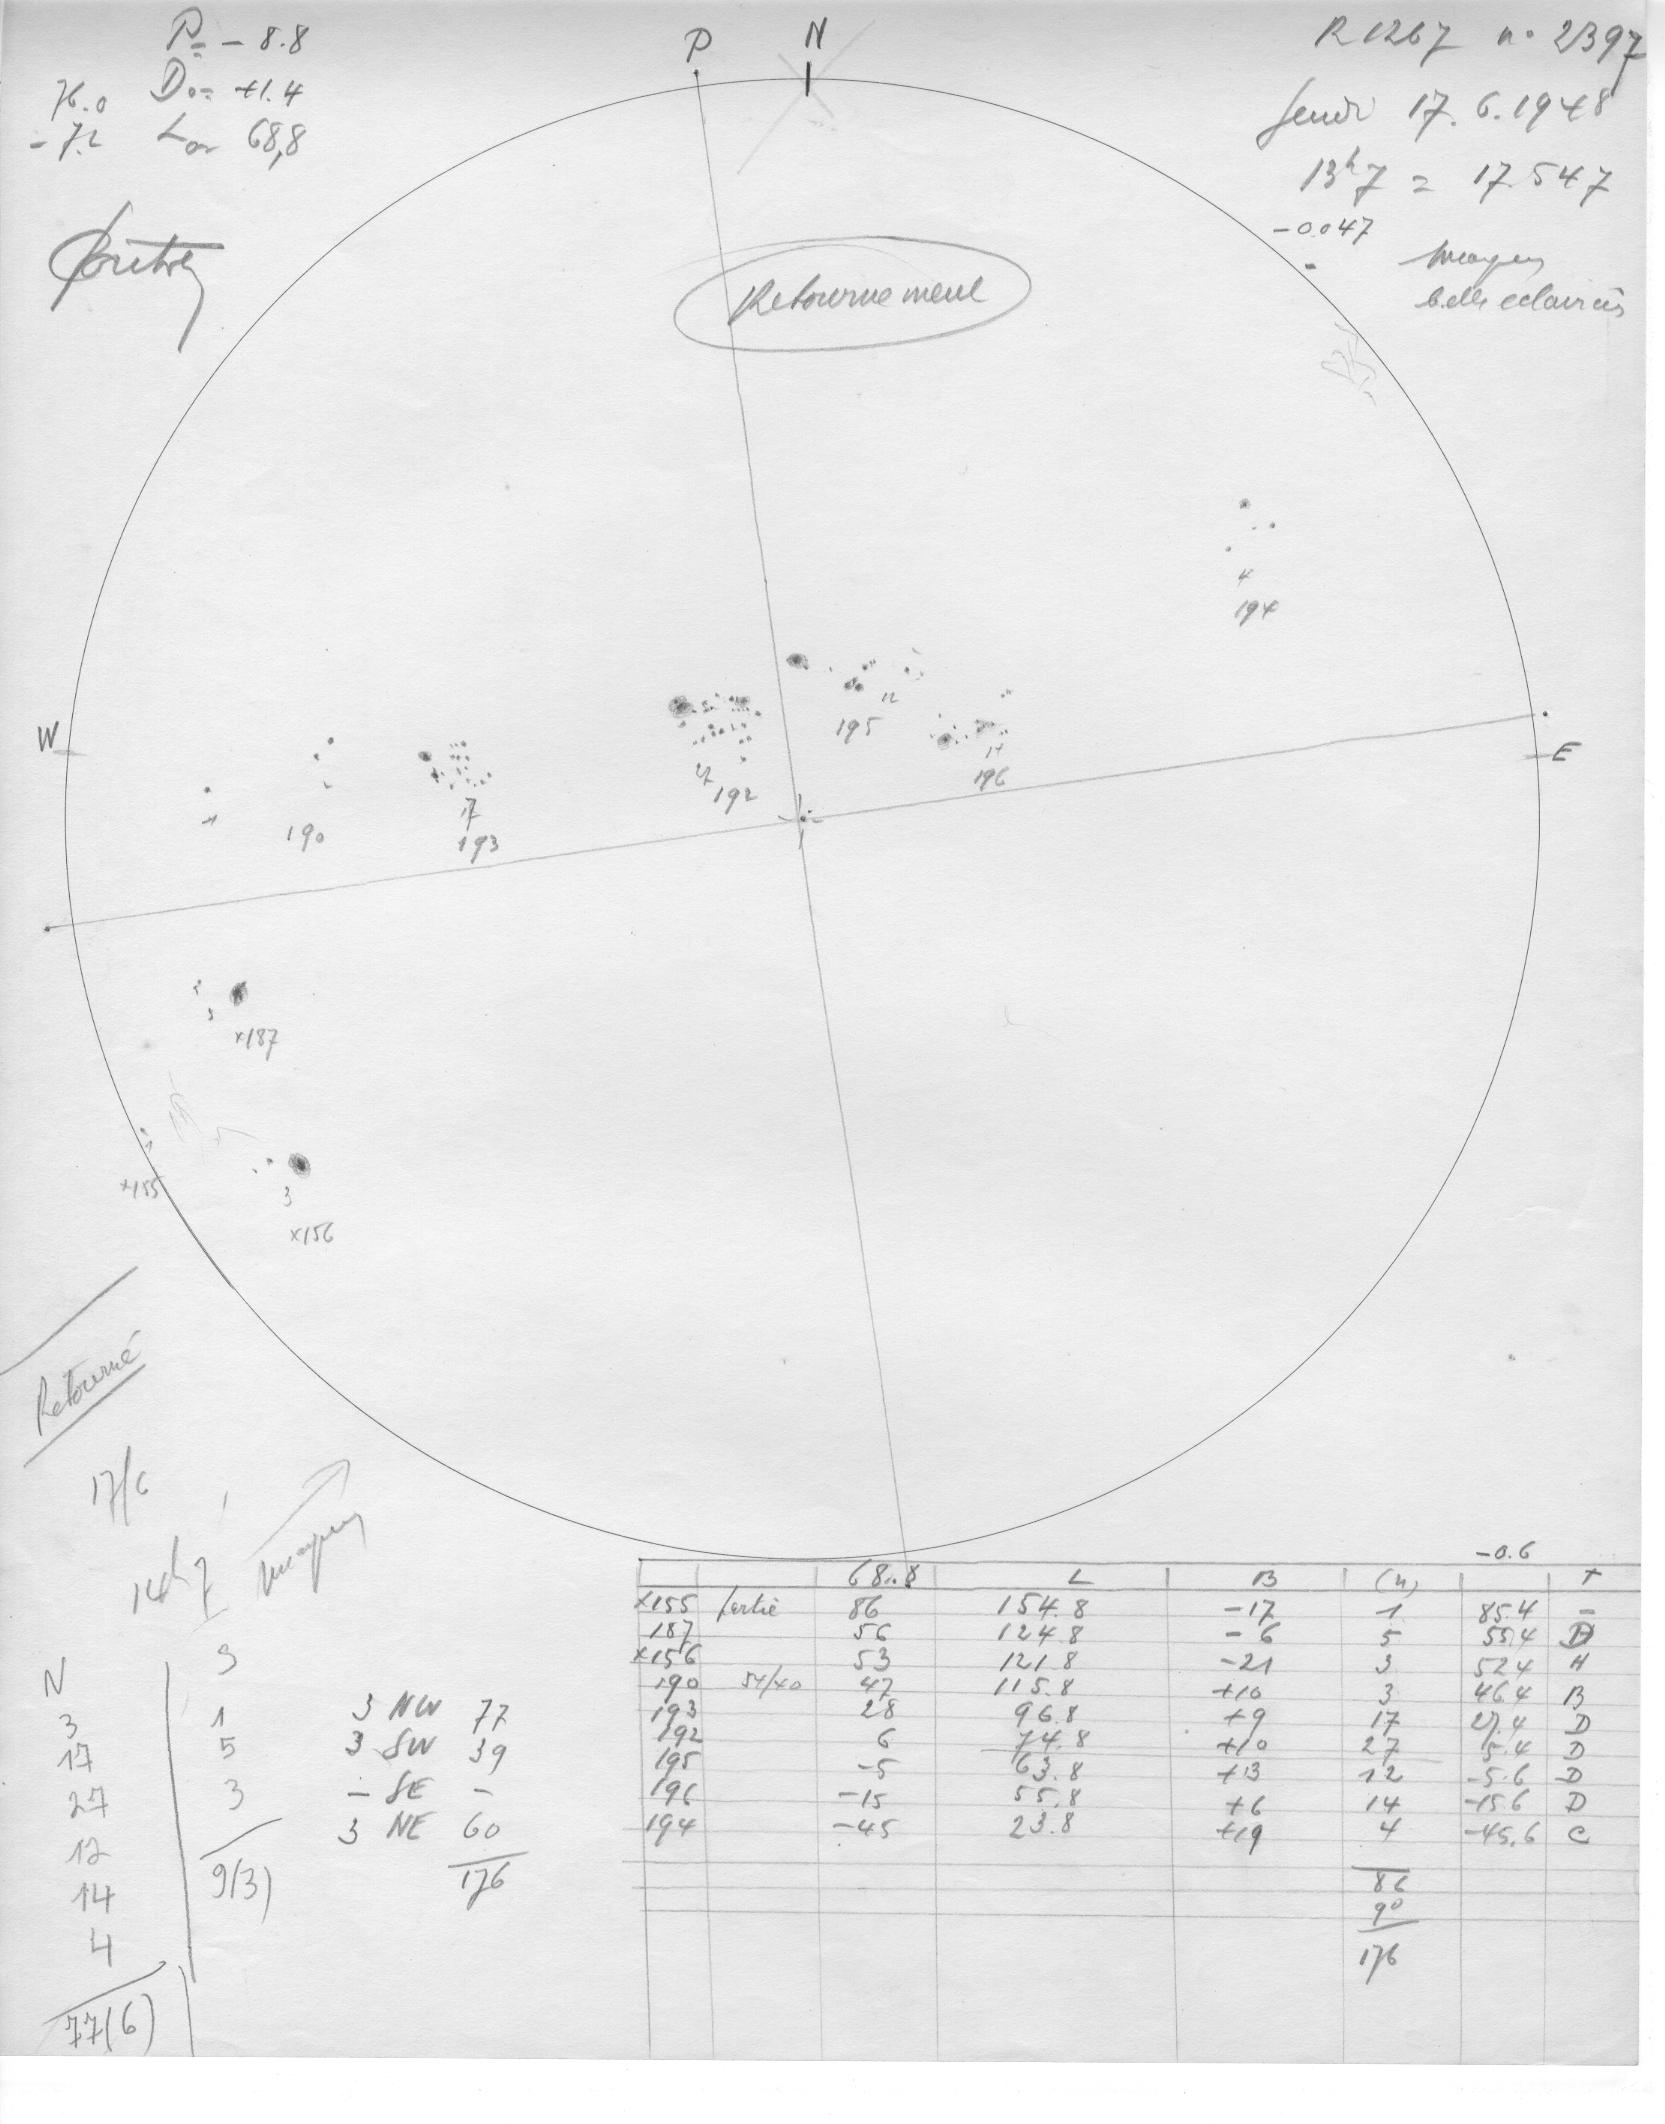 P = - 8.8
D₀ = +1.4
76.0
- 7.2 L₀ = 68,8
P N
R 1267 n° 2397
Jeudi 17. 6. 1948
13h7 = 17.547
-0.047
moyen
belle eclaircis
Retournement
4
194
12
195
14
196
27
192
17
193
190
1
W
E
2
3
×187
1
×155
3
×156
Retourné
17/6
14h7
moyen
N
3
17
27
12
14
4
77(6)
3
1
5
3
9(3)
3 NW 77
3 SW 39
- SE -
3 NE 60
176
-0.6
68.8 L B (n) T
×155 sortie 86 154.8 -17 1 85.4 -
187 56 124.8 - 6 5 55.4 D
×156 53 121.8 -21 3 52.4 H
190 54/40 47 115.8 +10 3 46.4 B
193 28 96.8 +9 17 27.4 D
192 6 74.8 +10 27 5.4 D
195 -5 63.8 +13 12 -5.6 D
196 -15 55.8 +6 14 -15.6 D
194 -45 23.8 +19 4 -45.6 C
86
90
176